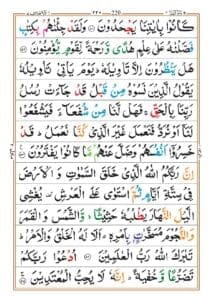 كَانُوۡا بِاٰيٰتِنَا يَجۡحَدُوۡنَ ۝ وَلَقَدۡ جِئۡنٰهُمۡ بِكِتٰبٍ
فَصَّلۡنٰهُ عَلٰى عِلۡمٍ هُدًى وَّرَحۡمَةً لِّقَوۡمٍ يُّؤۡمِنُوۡنَ ۝
هَلۡ يَنۡظُرُوۡنَ اِلَّا تَاۡوِيۡلَهٗ ؕ يَوۡمَ يَاۡتِىۡ تَاۡوِيۡلُهٗ
يَقُوۡلُ الَّذِيۡنَ نَسُوۡهُ مِنۡ قَبۡلُ قَدۡ جَآءَتۡ رُسُلُ
رَبِّنَا بِالۡحَـقِّ‌ ۚ فَهَلۡ لَّـنَا مِنۡ شُفَعَآءَ فَيَشۡفَعُوۡا
لَـنَاۤ اَوۡ نُرَدُّ فَنَعۡمَلَ غَيۡرَ الَّذِىۡ كُنَّا نَـعۡمَلُ‌ؕ قَدۡ
خَسِرُوۡۤا اَنۡفُسَهُمۡ وَضَلَّ عَنۡهُمۡ مَّا كَانُوۡا يَفۡتَرُوۡنَ ۝
اِنَّ رَبَّكُمُ اللّٰهُ الَّذِىۡ خَلَقَ السَّمٰوٰتِ وَ الۡاَرۡضَ
فِىۡ سِتَّةِ اَيَّامٍ ثُمَّ اسۡتَوٰى عَلَى الۡعَرۡشِ يُغۡشِى
الَّيۡلَ النَّهَارَ يَطۡلُبُهٗ حَثِيۡثًا ۙ وَّالشَّمۡسَ وَالۡقَمَرَ
وَالنُّجُوۡمَ مُسَخَّرٰتٍۢ بِاَمۡرِهٖ ؕ اَلَا لَـهُ الۡخَـلۡقُ وَالۡاَمۡرُ‌ ؕ
تَبٰرَكَ اللّٰهُ رَبُّ الۡعٰلَمِيۡنَ ۝ اُدۡعُوۡا رَبَّكُمۡ
تَضَرُّعًا وَّخُفۡيَةً‌ ؕ اِنَّهٗ لَا يُحِبُّ الۡمُعۡتَدِيۡنَ‌ ۝